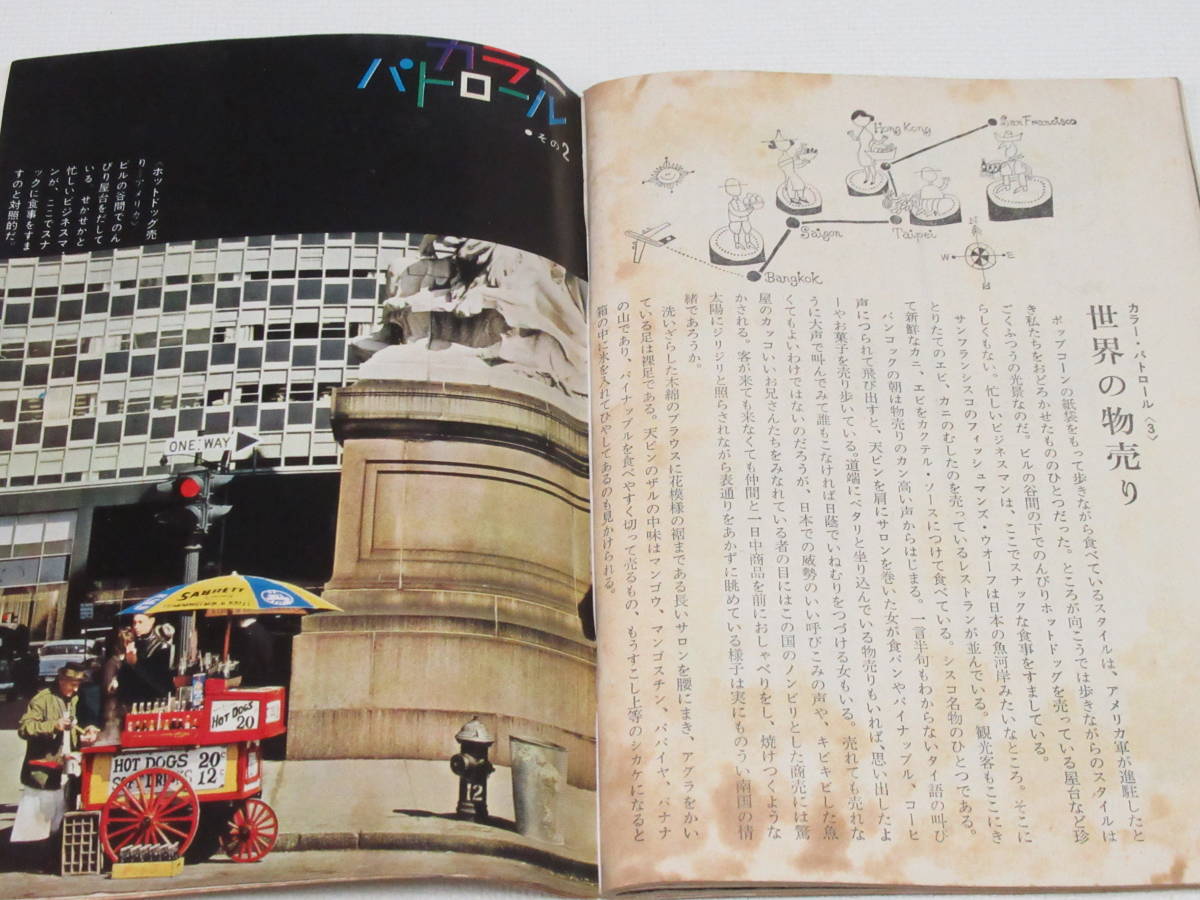 カラー
パトロール
・その2
〈ホットドッグ売
り—アメリカ〉
ビルの谷間でのん
びり屋台をだして
いる。せかせかと
忙しいビジネスマ
ンが、ここでスナ
ックに食事をすま
すのと対照的だ。
ONE WAY
SABRETT
HOT DOGS
20
HOT DOGS 20¢
SOFT DRINKS 12¢
12
San Francisco
Hong Kong
Saigon
Taipei
Bangkok
W
E
カラー・パトロール〈3〉
世界の物売り
ポップコーンの紙袋をもって歩きながら食べているスタイルは、アメリカ軍が進駐したと
き私たちをおどろかせたもののひとつだった。ところが向こうでは歩きながらのスタイルは
ごくふつうの光景なのだ。ビルの谷間の下でのんびりホットドッグを売っている屋台など珍
らしくもない。忙しいビジネスマンは、ここでスナックな食事をすましている。
サンフランシスコのフィッシュマンズ・ウオーフは日本の魚河岸みたいなところ。そこに
とりたてのエビ、カニのむしたのを売っているレストランが並んでいる。観光客もここにき
て新鮮なカニ、エビをカクテル・ソースにつけて食べている。シスコ名物のひとつである。
バンコックの朝は物売りのカン高い声からはじまる。一言半句もわからないタイ語の叫び
声につられて飛び出すと、天ビンを肩にサロンを巻いた女が食パンやパイナップル、コーヒ
ーやお菓子を売り歩いている。道端にペタリと坐り込んでいる物売りもいれば、思い出したよ
うに大声で叫んでみて誰もこなければ日蔭でいねむりをつづける女もいる。売れても売れな
くてもよいわけではないのだろうが、日本での威勢のいい呼びこみの声や、キビキビした魚
屋のカッコいいお兄さんたちをみなれている者の目にはこの国のノンビリとした商売には驚
かされる。客が来ても来なくても仲間と一日中商品を前におしゃべりをし、焼けつくような
太陽にジリジリと照らされながら表通りをあかずに眺めている様子は実にものうい南国の情
緒であろうか。
洗いざらした木綿のブラウスに花模様の裾まである長いサロンを腰にまき、アグラをかい
ている足は裸足である。天ビンのザルの中味はマンゴウ、マンゴスチン、パパイヤ、バナナ
の山であり、パイナップルを食べやすく切って売るもの、もうすこし上等のシカケになると
箱の中に氷を入れてひやしてあるのも見かけられる。